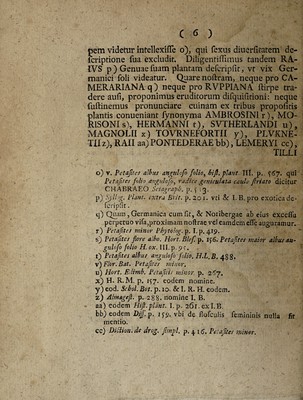 ( 6 )
pem videtur intellexisse o), qui sexus diuersitatem de-
scriptione sua excludit. Diligentissimus tandem RA-
IVS p) Genuae suam plantam descripsit, vt vix Ger-
manici soli videatur. Quare nostram, neque pro CA-
MERARIANA q) neque pro RVPPIANA stirpe tra-
dere ausi, proponimus eruditorum disquisitioni: neque
sustinemus pronunciare cuinam ex tribus propositis
plantis conueniant synonyma AMBROSINI r), MO-
RISONI s), HERMANNI t), SVTHERLANDI u),
MAGNOLII x) TOVRNEFORTII y), PLVKNE-
TII z), RAII aa) PONTEDERAE bb), LEMERYI cc),
TILLI
o) v. Petasites albus anguloso folio, hist. plant. III. p. 567. qui
Petasites folio anguloso, radice geniculata caule floriato dicitur
CHABRAEO Sciagraph. p. 513.
p) Syllog. Plant. extra Brit. p. 201. vti & I. B. pro exotica de-
scripsit.
q) Quum, Germanica cum sit, & Noribergae ab eius excessu
perpetuo visa, proximam nostrae vel eamdem esse auguramur.
r) Petasites minor Phytolog. p. I. p. 419.
s) Petasites flore albo. Hort. Bles. p. 156. Petasites maior albus an-
guloso folio H. ox. III. p. 95.
t) Petasites albus anguloso folio, H. L. B. 488.
v) Flor. Bat. Petasites minor,
u) Hort. Edimb. Petasitis minor p. 267.
x) H. R. M. p. 157. eodem nomine.
y) eod. Schol. Bot. p. 10. & I. R. H. eodem.
z) Almagest. p. 288. nomine I. B.
aa) eodem Hist. plant. I. p. 261. ex I. B.
bb) eodem Diss. p. 159. vbi de flosculis femininis nulla fit
mentio.
cc) Diction. de drog. simpl. p. 416. Petasites minor.